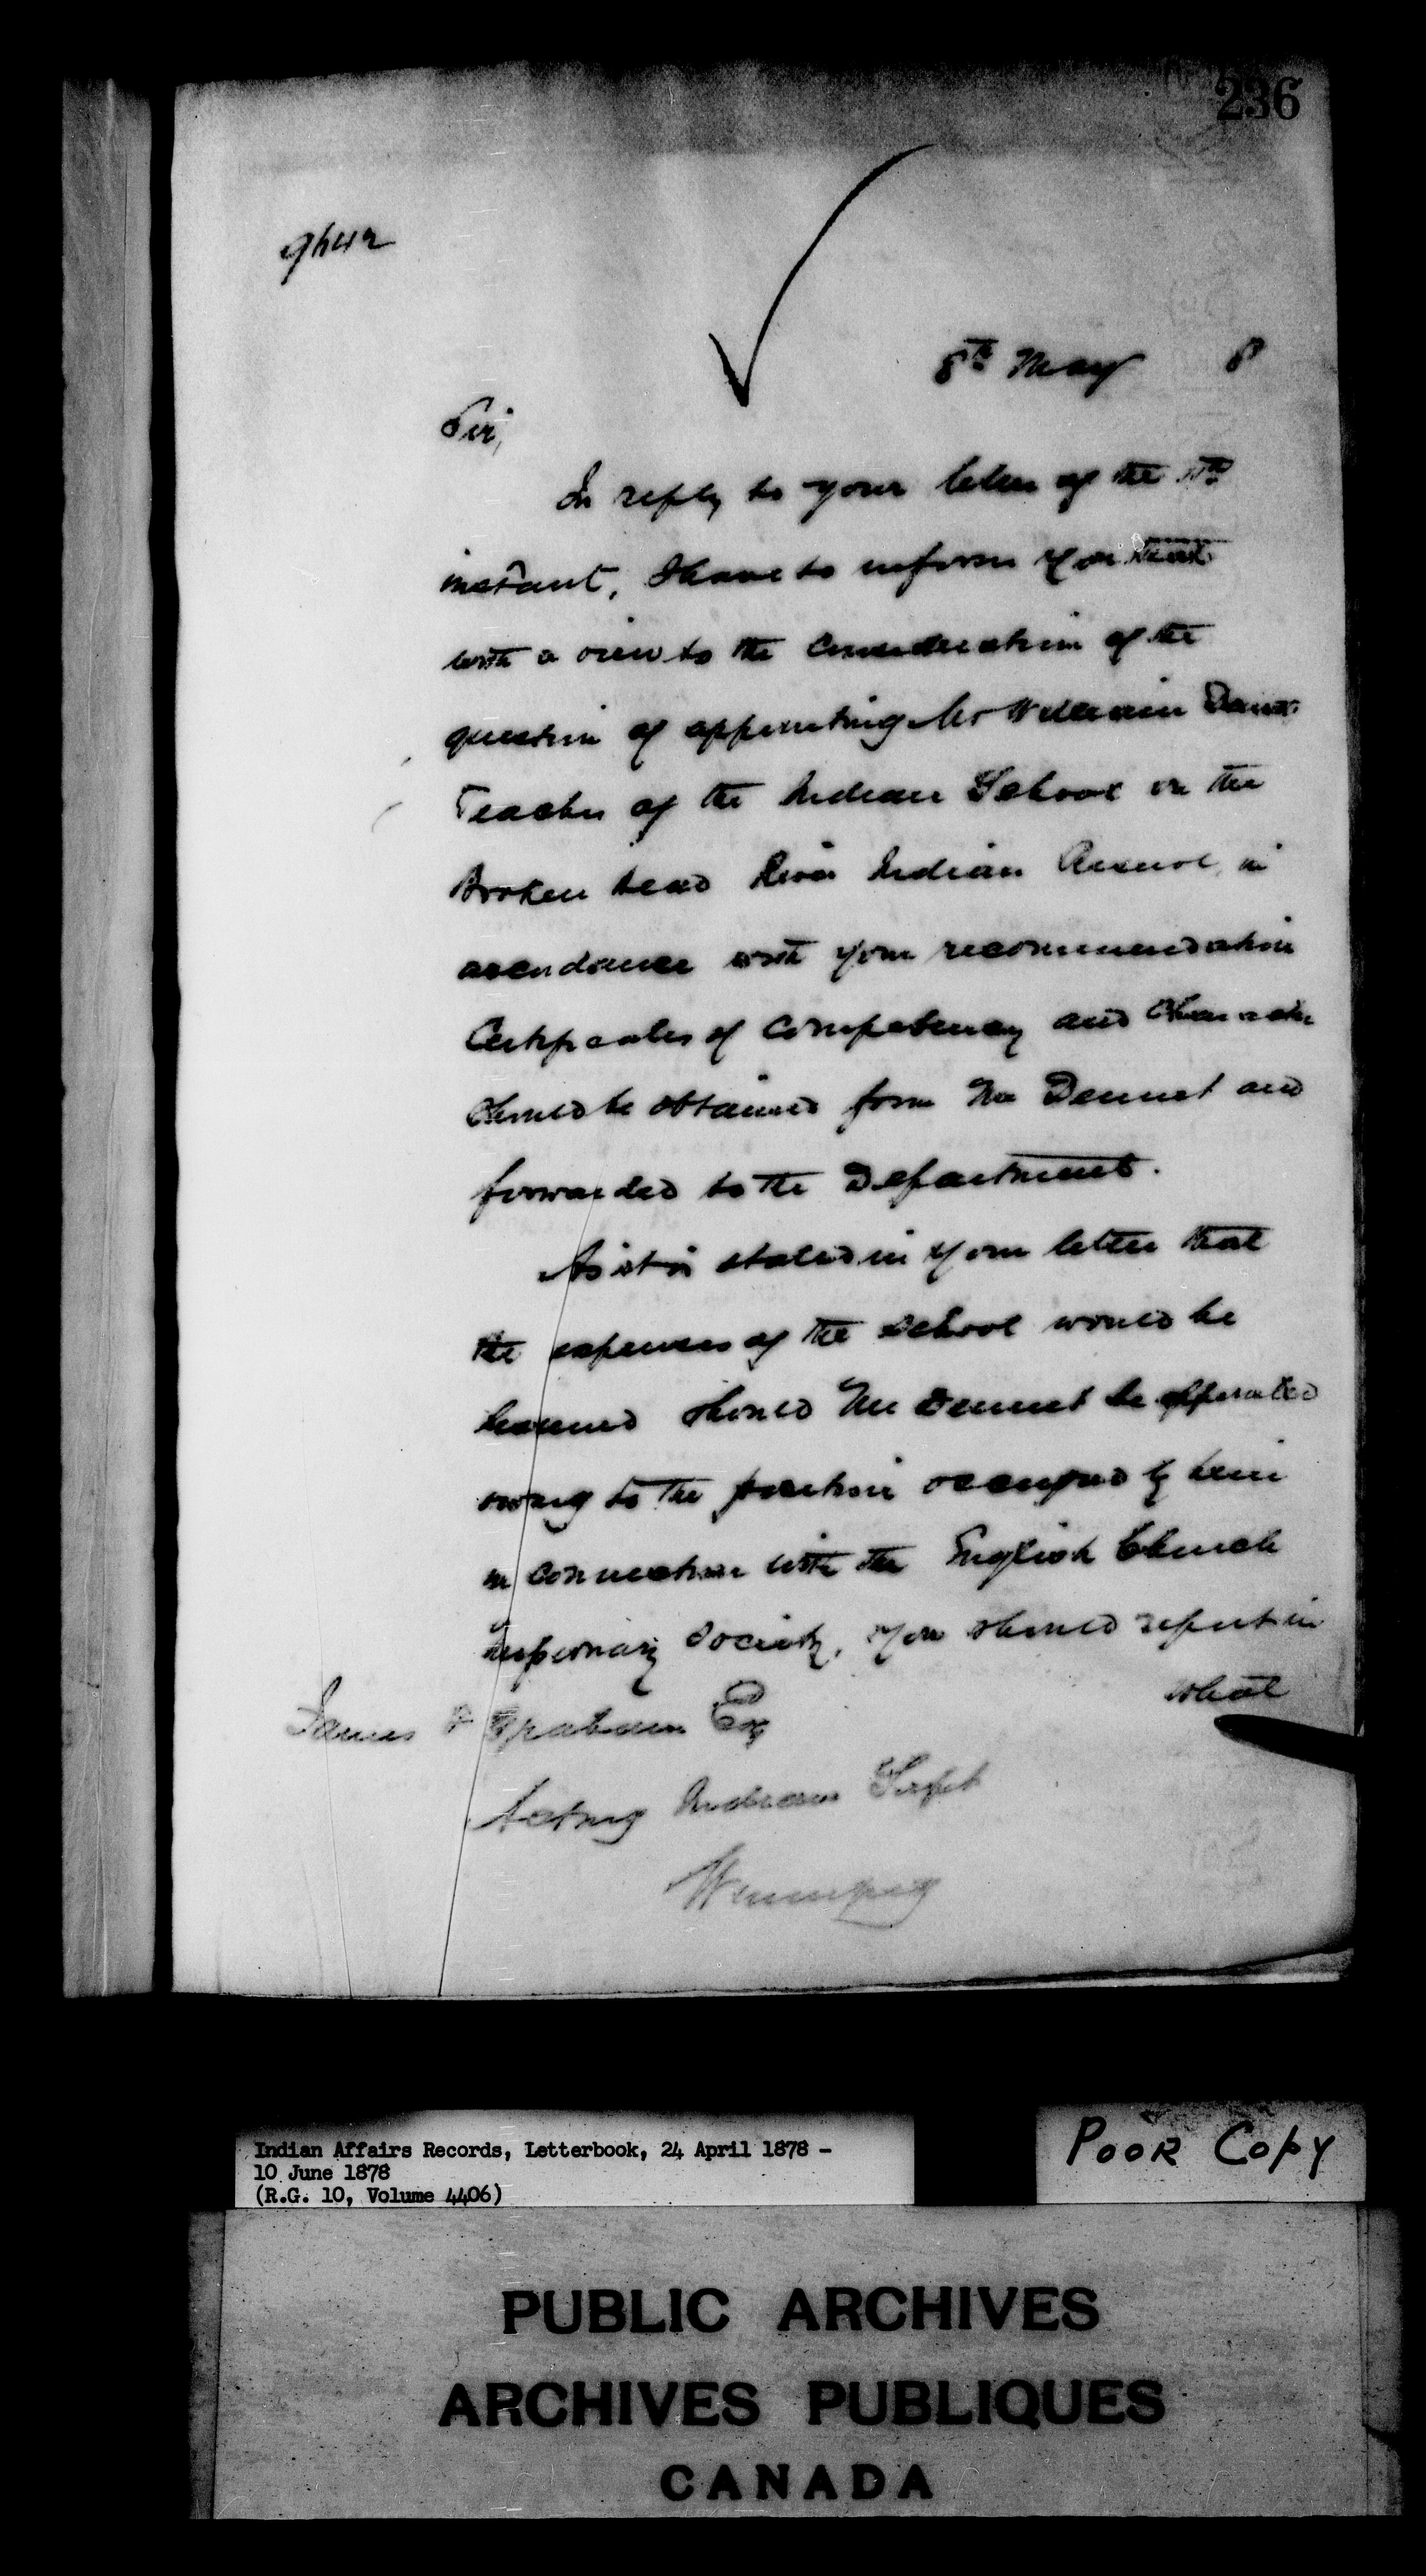 236
8th May 8
Sir,
In reply to your letter of the
instant, I have to inform you that
with a view to the consideration of the
question of appointing Mr William
Teacher of the Indian School on the
Broken Head River Indian Reserve, in
accordance with your recommendation
Certificates of Competency and Character
should be obtained from Mr Dennet and
forwarded to the Department.
As it is stated in your letter that
the expenses of the School would be
lessened should Mr Dennet be appointed
owing to the position occupied by him
in connection with the English Church
Missionary Society, you should report in
what
James F Graham Esq
Acting Indian Supt
Winnipeg
Indian Affairs Records, Letterbook, 24 April 1878 -
10 June 1878
(R.G. 10, Volume 4406)
POOR COPY
PUBLIC ARCHIVES
ARCHIVES PUBLIQUES
CANADA